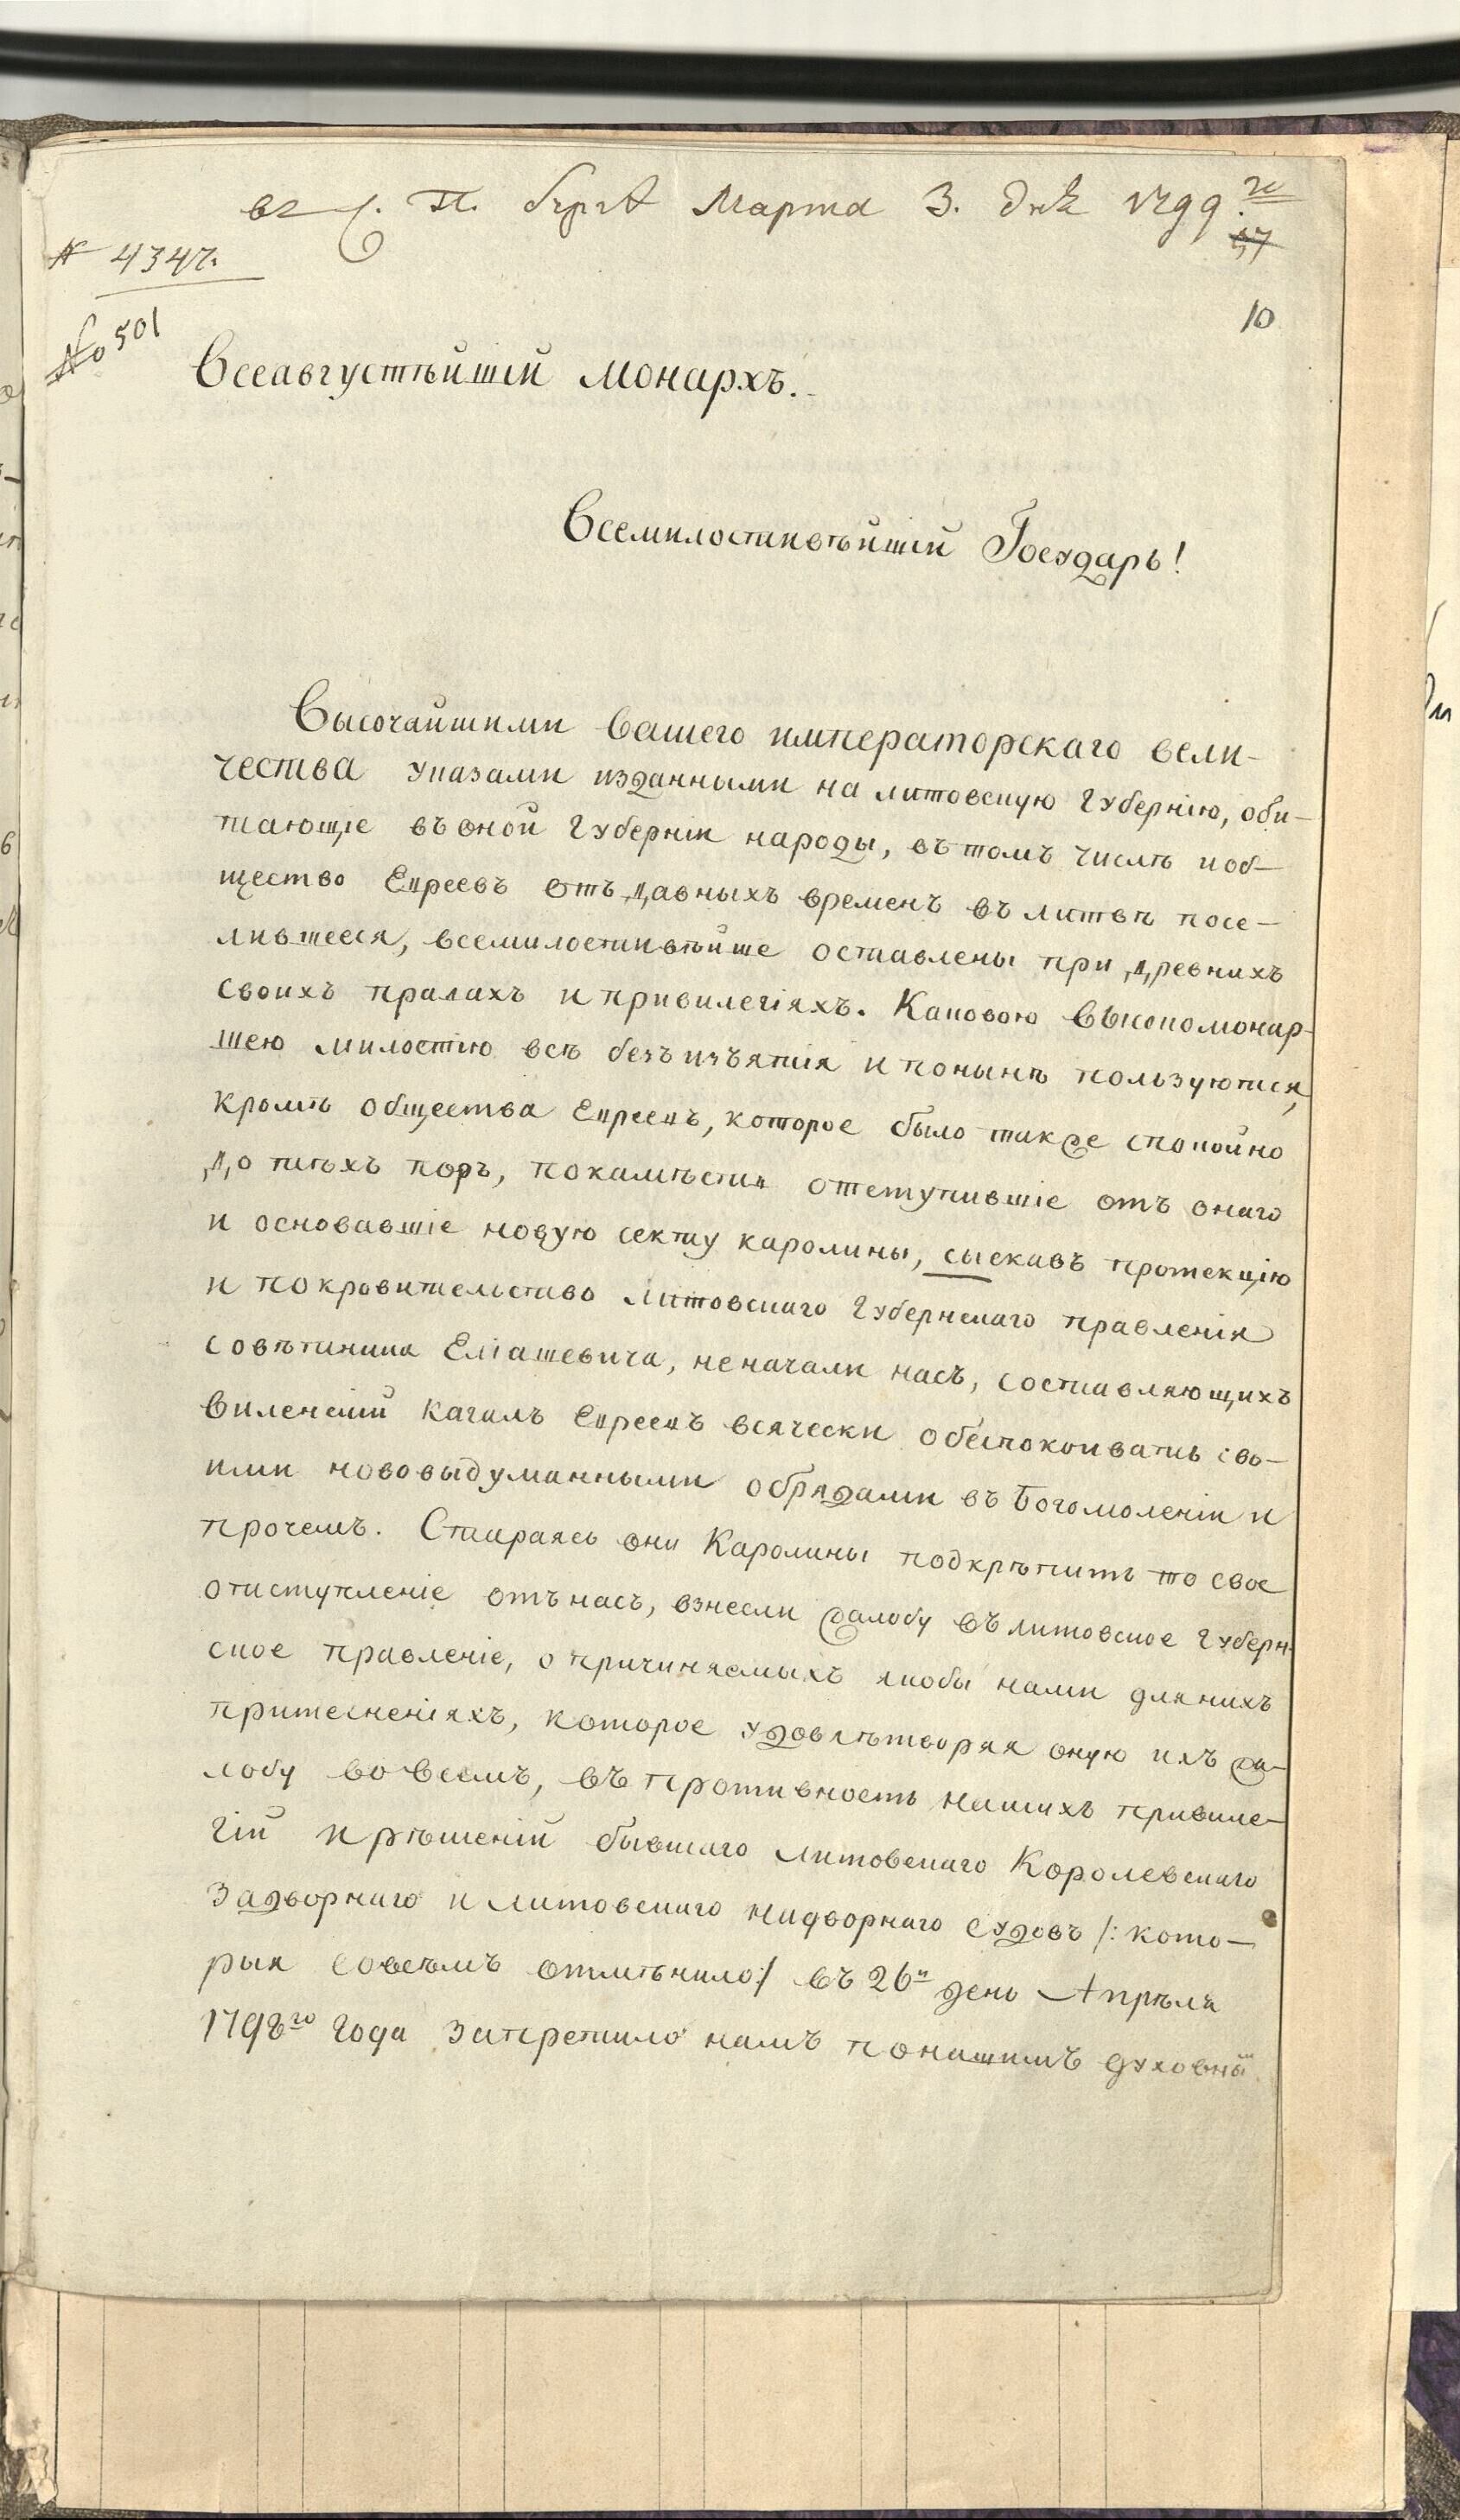 въ С. П. бургѣ Марта 3. дня 1799.го
№ 4347.
17
№ 501
10
Всеавгустѣйшій Монархъ.
Всемилостивѣйшій Государь!
Высочайшими Вашего императорскаго вели-
чества указами изданными на литовскую Губернію, оби-
тающіе въ оной Губерніи народы, въ томъ числѣ и об-
щество Евреевъ отъ давныхъ временъ въ литвѣ посе-
лившееся, всемилостивѣйше оставлены при древнихъ
своихъ правахъ и привилегіяхъ. Каковою Высокомонар-
шею милостію всѣ безъ изъятія и понынѣ пользуются,
кромѣ общества Евреевъ, которое было также спокойно
до тѣхъ поръ, покамѣстъ отступившіе отъ онаго
и основавшіе новую секту каролины, сыскавъ протекцію
и покровительство литовскаго Губернскаго правленія
совѣтника Еліашевича, не начали насъ, составляющихъ
Виленскій Кагалъ Евреевъ всячески обеспокоивать сво-
ими нововыдуманными обрядами въ Богомоленіи и
прочемъ. Стараясь они Каролины подкрѣпить то свое
отступленіе отъ насъ, взнесли жалобу въ литовское Губерн-
ское правленіе, о причиняемыхъ якобы нами для нихъ
притесненіяхъ, которое удовлѣтворяя оную ихъ жа-
лобу во всемъ, въ противность нашихъ привиле-
гій и рѣшеній бывшаго литовскаго Королевскаго
Задворнаго и литовскаго надворнаго судовъ /: кото-
рыя совсѣмъ отмѣнило:/ въ 26й день Апрѣля
1798го года запретило намъ по нашимъ духовны̃